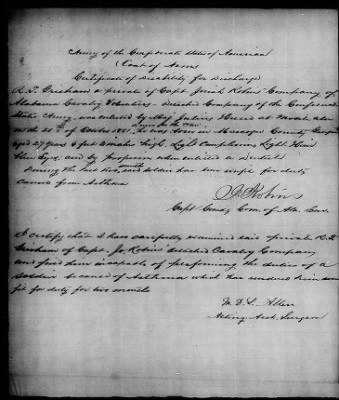 Army of the Confederate States of America
(Coat of Arms
Certificate of Disability for Discharge
R. T. a private of Capt. Josiah Robins' Company of
Alabama Cavalry Volunteers - detached Company of the Confederate
States Army, was enlisted by Maj at
on the of October 1861, he was born in Muscogee County
aged 27 years 6 feet inches high, Light Complexion, Light Hair
Blue Eyes, and by profession when enlisted a Dentist
During the last two months said soldier has been unfit for duty
from Asthma
J. Robins
Capt Comdg Com of Ala Cav.
I certify that I have carefully examined said private R. T.
of Capt. Jo. Robins detached Cavalry Company
and find him incapable of performing the duties of a
Soldier because of Asthma which has rendered him un-
fit for duty for two months
Allen
Acting Asst. Surgeon